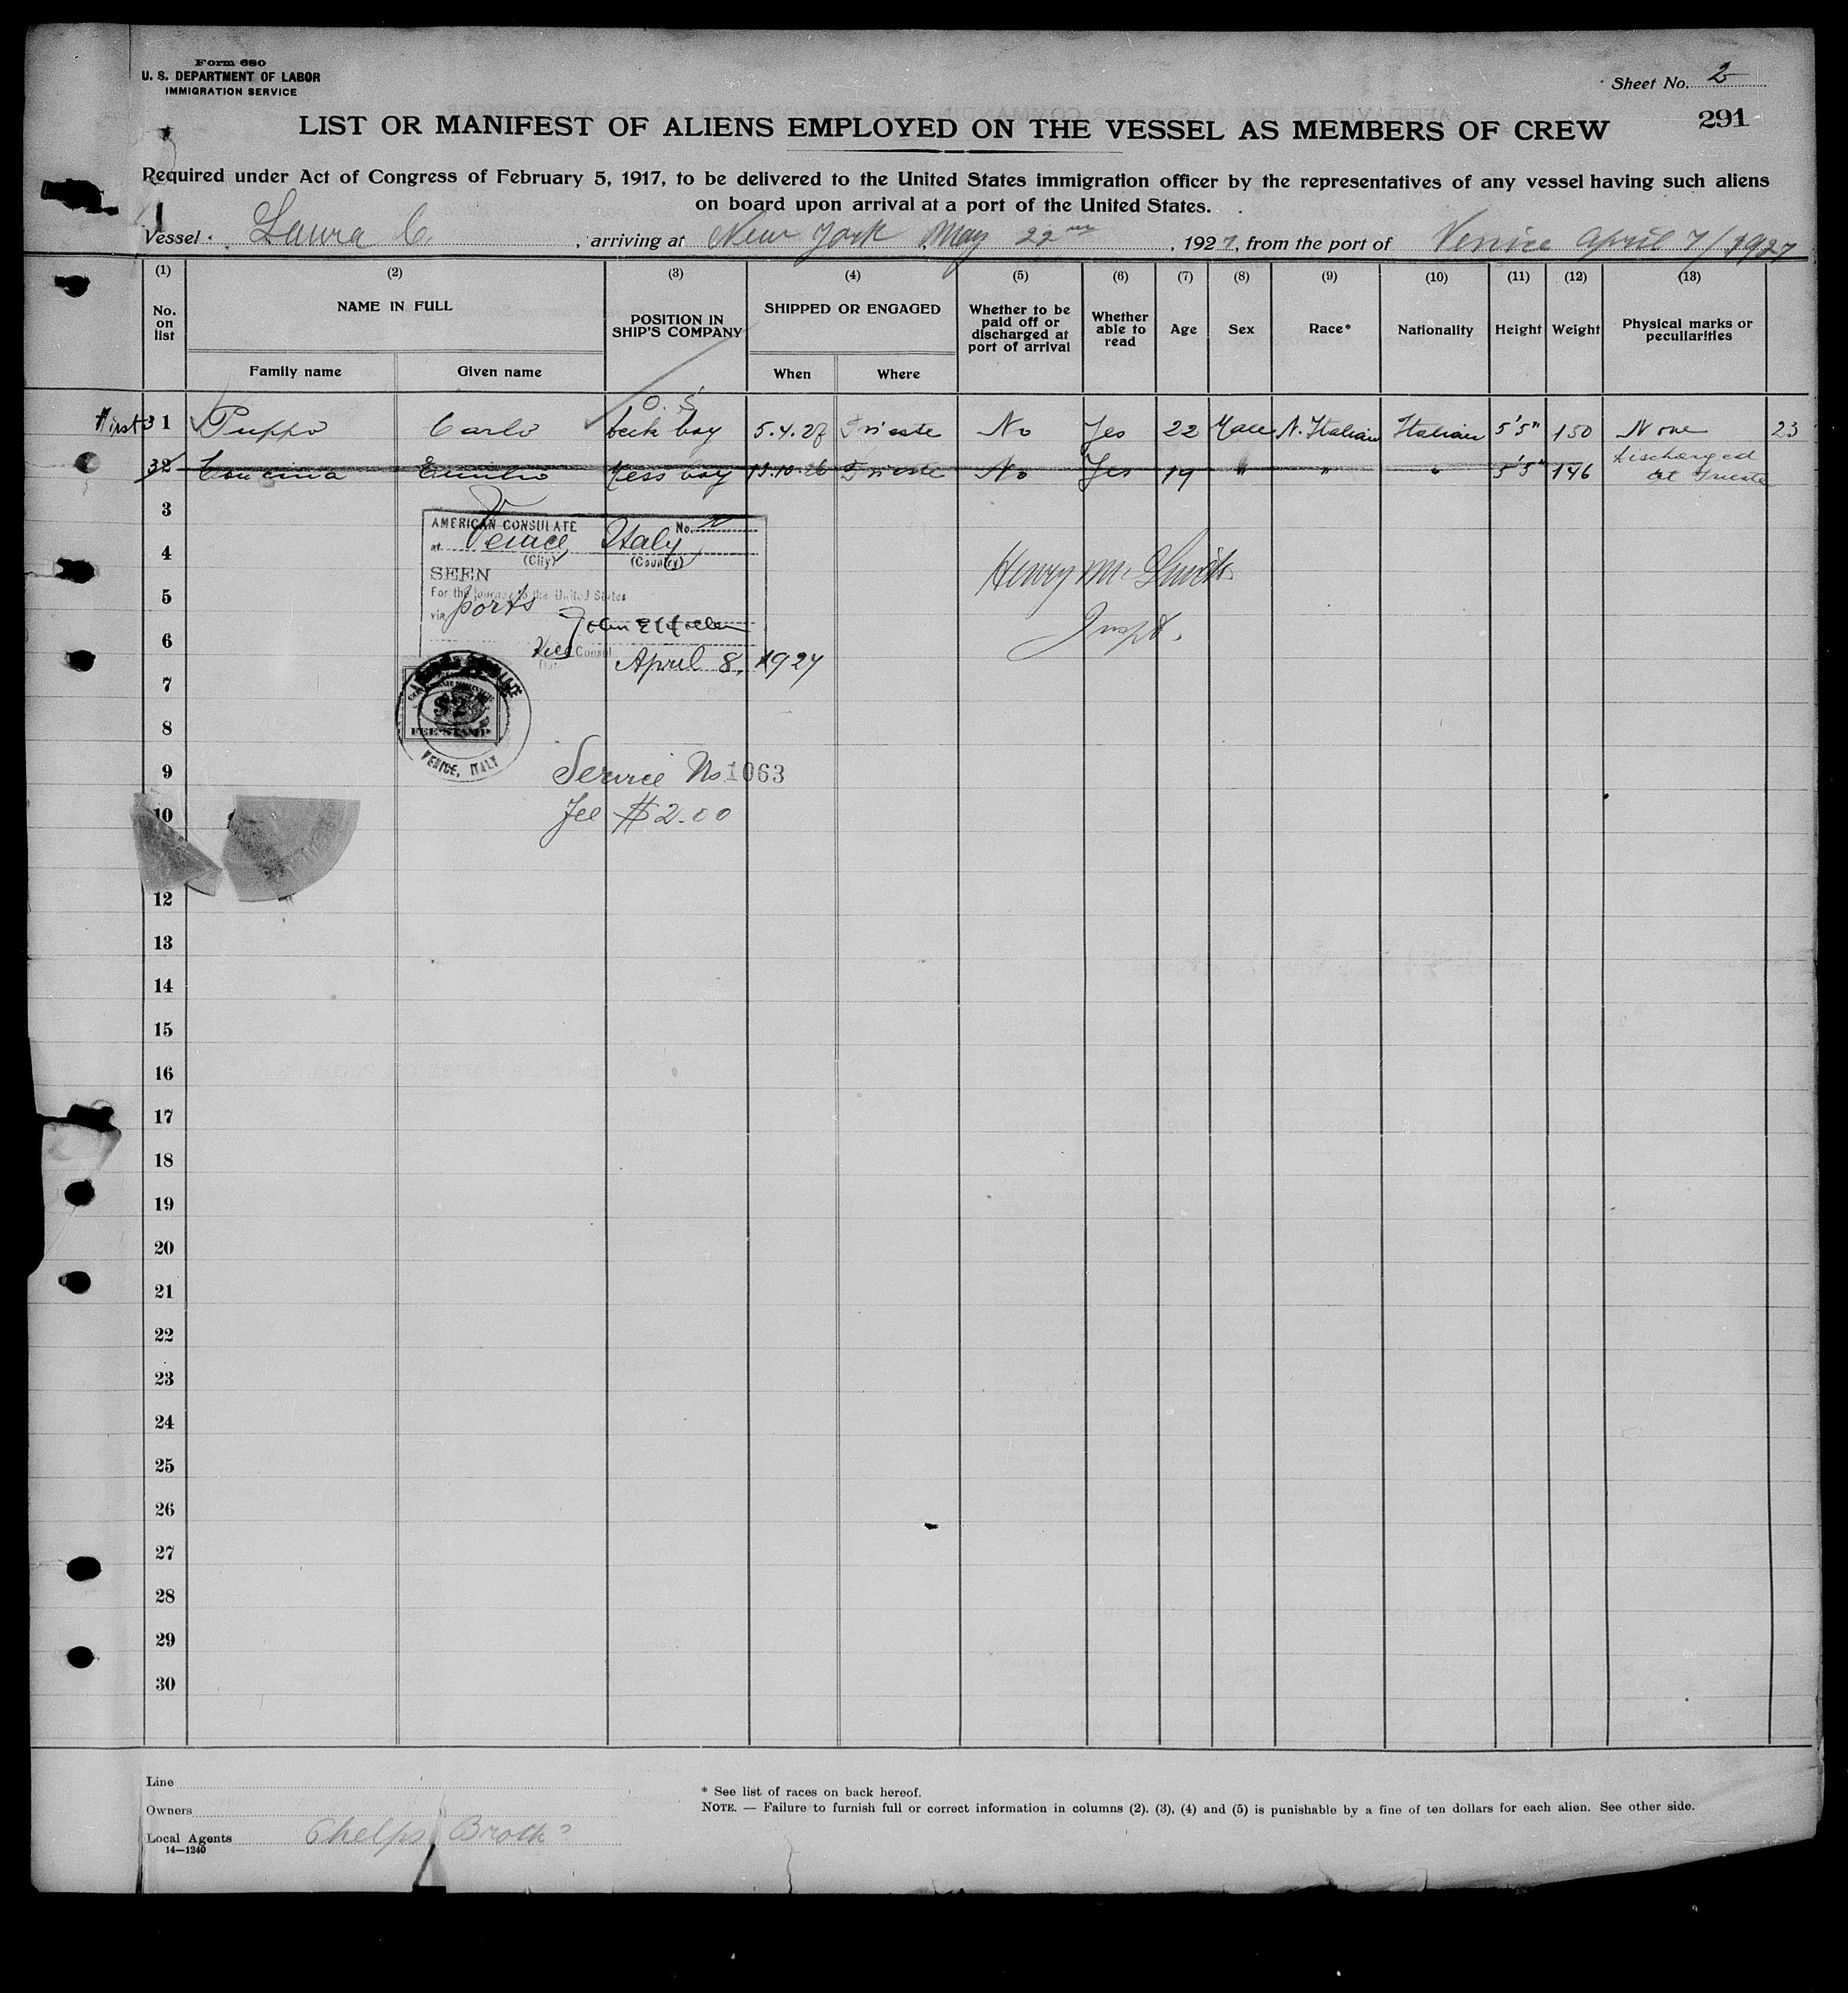 Form 680
U. S. DEPARTMENT OF LABOR
IMMIGRATION SERVICE
Sheet No. 2
291
LIST OR MANIFEST OF ALIENS EMPLOYED ON THE VESSEL AS MEMBERS OF CREW
Required under Act of Congress of February 5, 1917, to be delivered to the United States immigration officer by the representatives of any vessel having such aliens
on board upon arrival at a port of the United States.
Vessel Laura C. , arriving at New York May 22nd , 1927, from the port of Venice April 7/1927
(1) (2) (3) (4) (5) (6) (7) (8) (9) (10) (11) (12) (13)
No. on list NAME IN FULL POSITION IN SHIP'S COMPANY SHIPPED OR ENGAGED Whether to be paid off or discharged at port of arrival Whether able to read Age Sex Race* Nationality Height Weight Physical marks or peculiarities
Family name Given name When Where
O. S.
First 31 Puppo Carlo Deck boy 5.4.27 Trieste No Yes 22 Male N. Italian Italian 5'5" 150 None 23
32 Concina Emilio Mess boy 19.10.26 Trieste No Yes 19 " " " 5'5" 146 Discharged
at Trieste
3
AMERICAN CONSULATE No.
4
at Venice, Italy
(City) (Country)
SEEN
Henry
5
For the journey to the United States
via ports
John
6
Inspt.
Vice Consul
April 8, 1927
7
$2
8
FEE STAMP
VENICE, ITALY
9
Service No 1063
10
Fee $2.00
12
13
14
15
16
17
18
19
20
21
22
23
24
25
26
27
28
29
30
Line
* See list of races on back hereof.
Owners
NOTE. — Failure to furnish full or correct information in columns (2), (3), (4) and (5) is punishable by a fine of ten dollars for each alien. See other side.
Local Agents Phelps Broth
14—1240